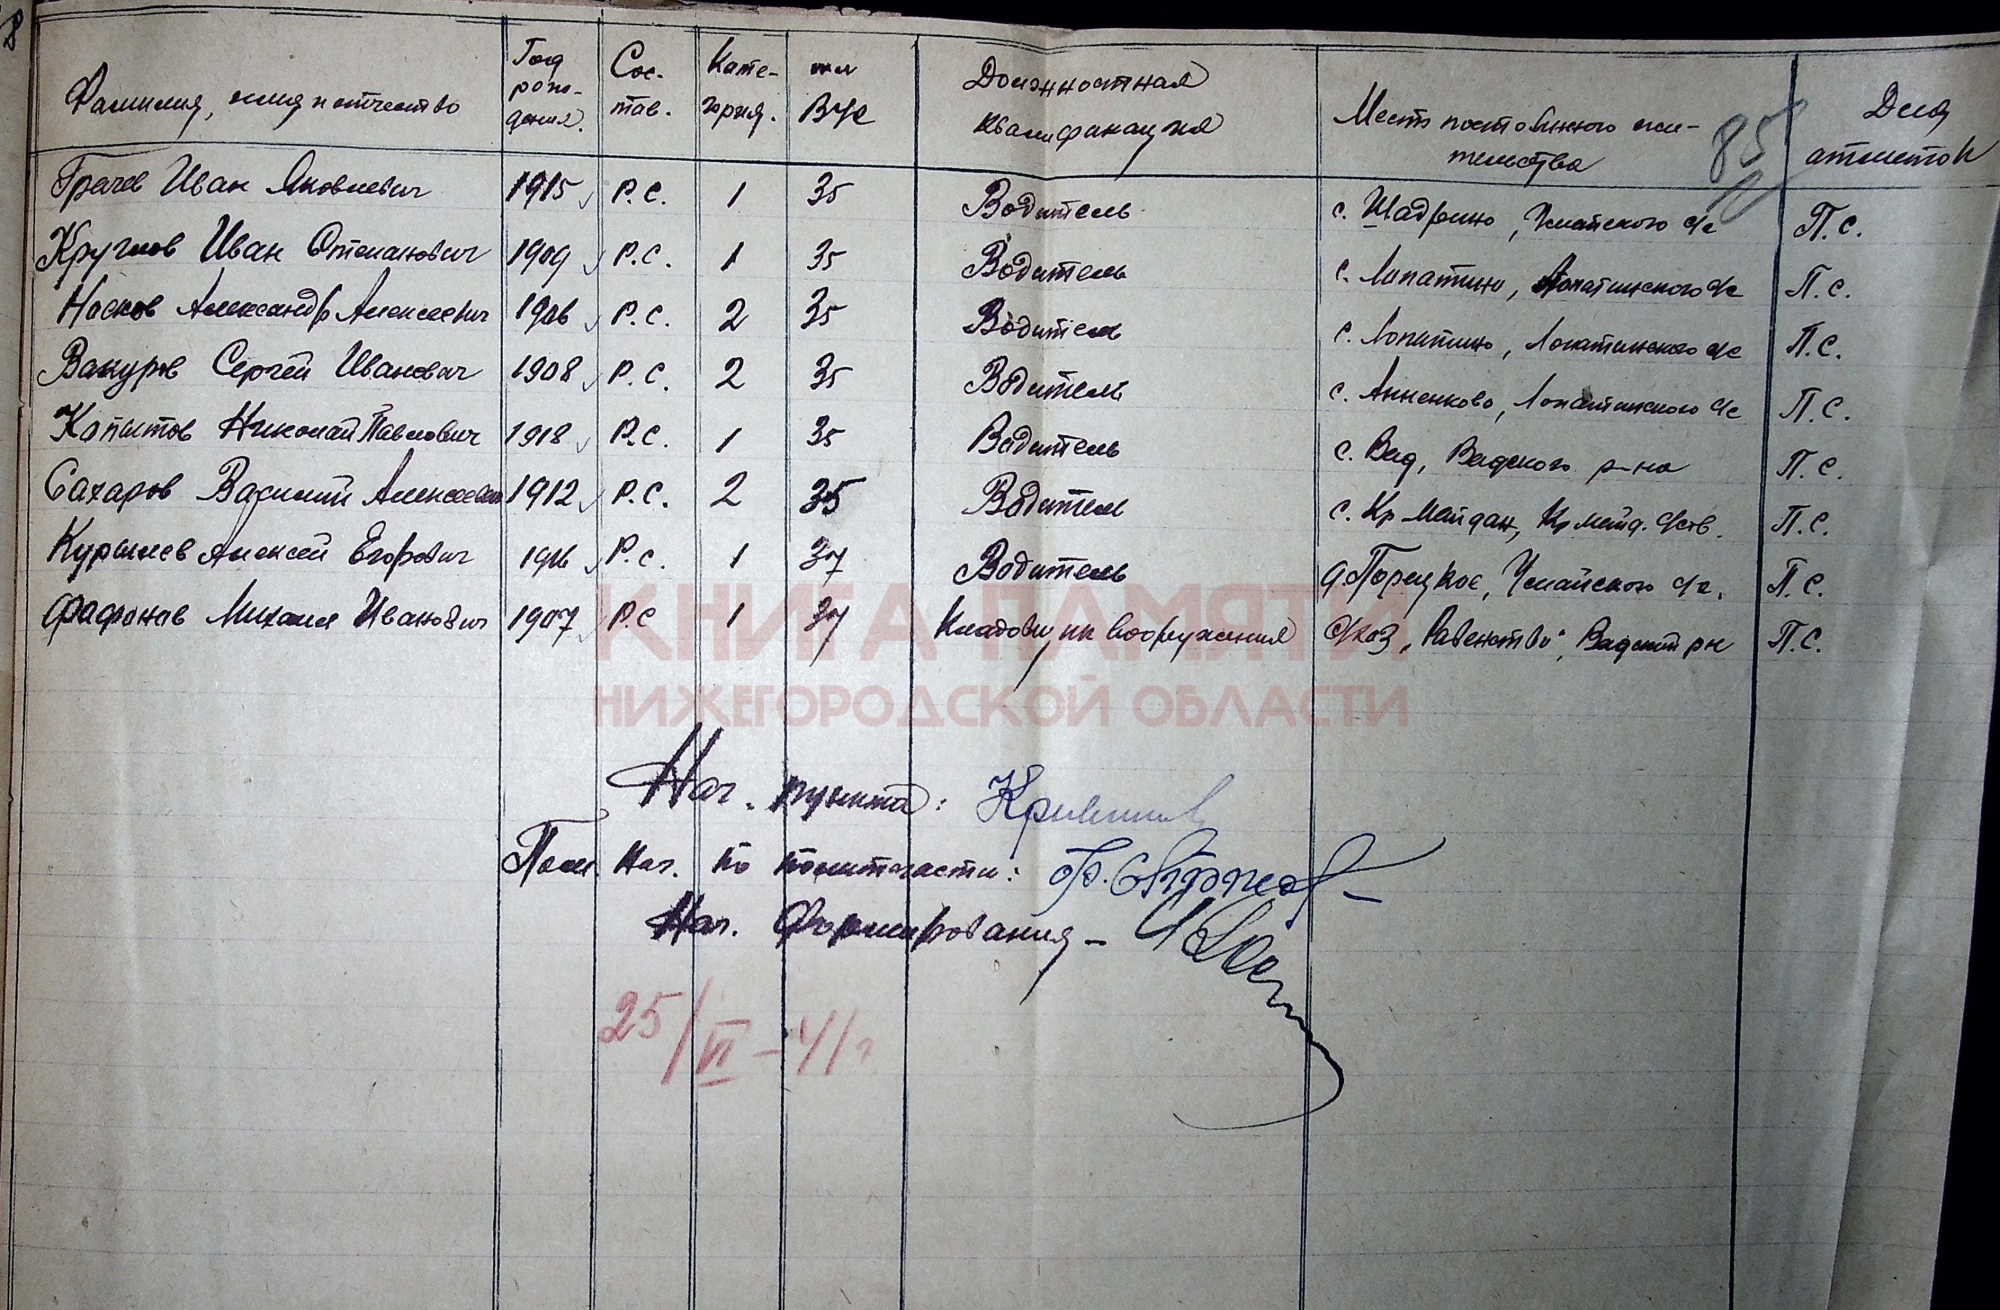 8
Фамилия, имя и отчество Год рождения. Сос-тав. Кате-гория. ВУС Должностная квалификация Место постоянного жи-тельства Для отметок
85
Грачев Иван Яковлевич 1915 Р.С. 1 35 Водитель с. Шадрино, Умайского с/с П.С.
Круглов Иван Степанович 1909 Р.С. 1 35 Водитель с. Лопатино, Лопатинского с/с П.С.
Носков Александр Алексеевич 1906 Р.С. 2 35 Водитель с. Лопатино, Лопатинского с/с П.С.
Вакуров Сергей Иванович 1908 Р.С. 2 35 Водитель с. Анненково, Лопатинского с/с П.С.
Капытов Николай Павлович 1918 Р.С. 1 35 Водитель с. Вад, Вадского р-на П.С.
Сахаров Василий Алексеевич 1912 Р.С. 2 35 Водитель с. Кр Майдан, Кр майд. с/сов. П.С.
Курылев Алексей Егорович Р.С. 1 37 Водитель д. Порецкое, Умайского с/с. П.С.
Фафонов Михаил Иванович 1907 Р.С 1 37 Кладовщик вооружения с/коз „Равенство", Вадский рн П.С.
КНИГА ПАМЯТИ
НИЖЕГОРОДСКОЙ ОБЛАСТИ
Нач. пункта:
Пом. Нач. по политчасти:
Нач. Формирования –
25/VI–41г